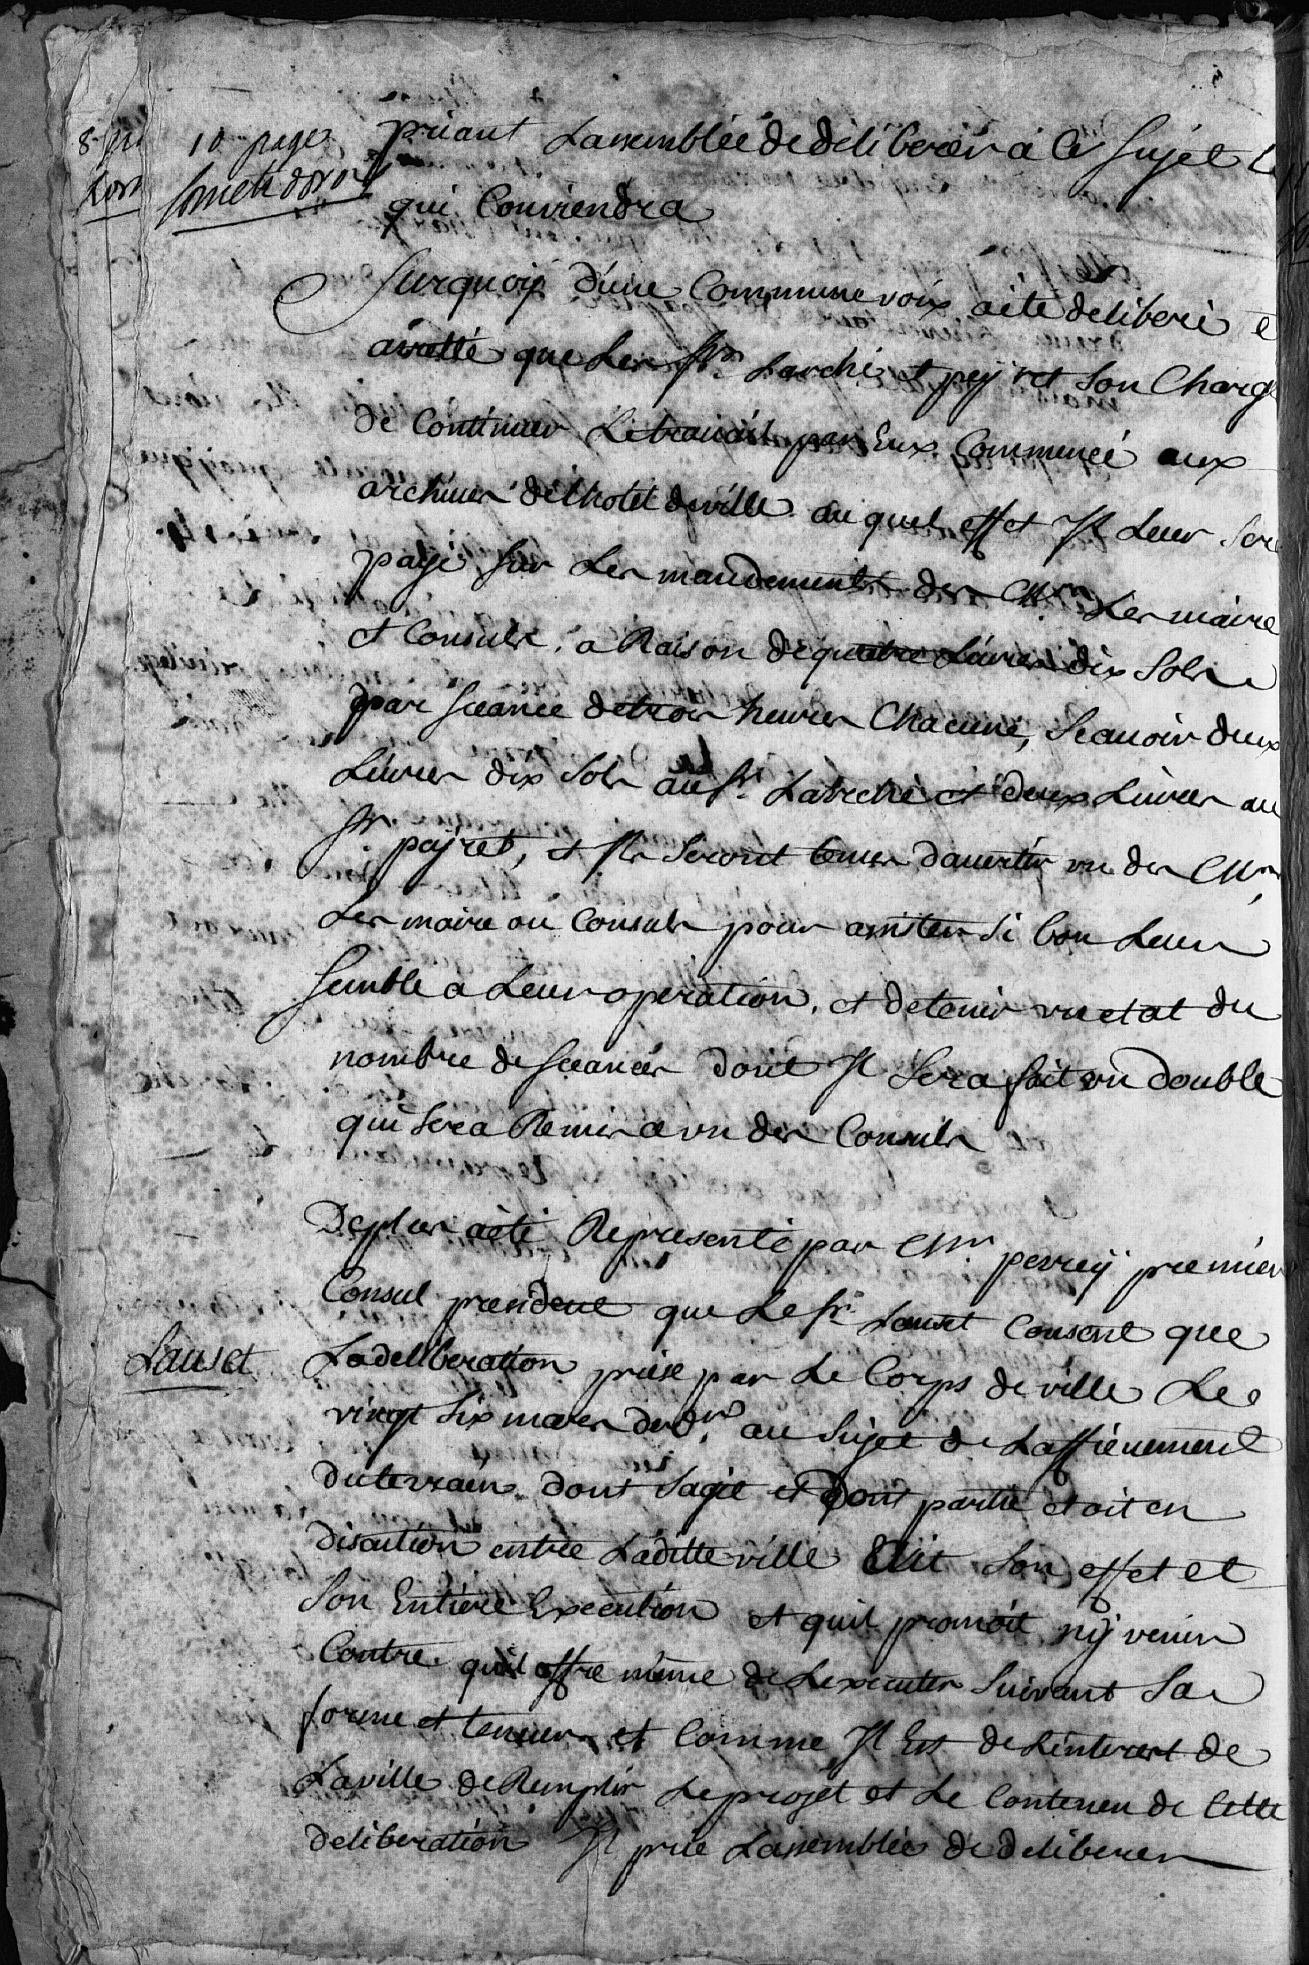 10 pages
priant Lassemblée de deliberer á Ce Sujet
qui Conviendra
Surquoy d'une Commune voix aété deliberé e
arretté que Les Srs Larché et peyret Son Charg
de Continuer Letravail par Eux Commencé aux
archives delhotel deville auquel effet Jl Leur Sera
payé Sur Les mandements des Mrs Les maire
et Consuls, a Raison dequatre Livres dix Sols
par Sceance detrois heures Chacune, Scavoir deux
Livres dix Sols au Sr Larché et deux Livres au
Sr peyret, et Jls Seront tenus davertir un des Mrs
Les maire ou Consuls pour assister Si bon Leur
Semble a Leur operation, et detenir un etat du
nombre de Sceances dont Jl Sera fait un double
qui Sera Remis a un des Consuls
Deplus aété Representé par Mr perrey premier
Consul president que Le Sr Lauset Consent que
Lauset
Ladeliberation prise par Le Corps deville Le
vingt Six mars der au Sujet de Laffievement
duterrain dont Sagit et dont partie etoit en
discution entre Laditte ville Eut Son effet et
Son Entiere Execution et quil promoit ny venir
Contre quil offre même de Lexecuter Suivant Sa
forme et teneur et Comme Jl Est de Linterest de
Laville de Remplir Leprojet et Le Contenu de Cette
deliberation Jl prie Lassemblée de deliberer